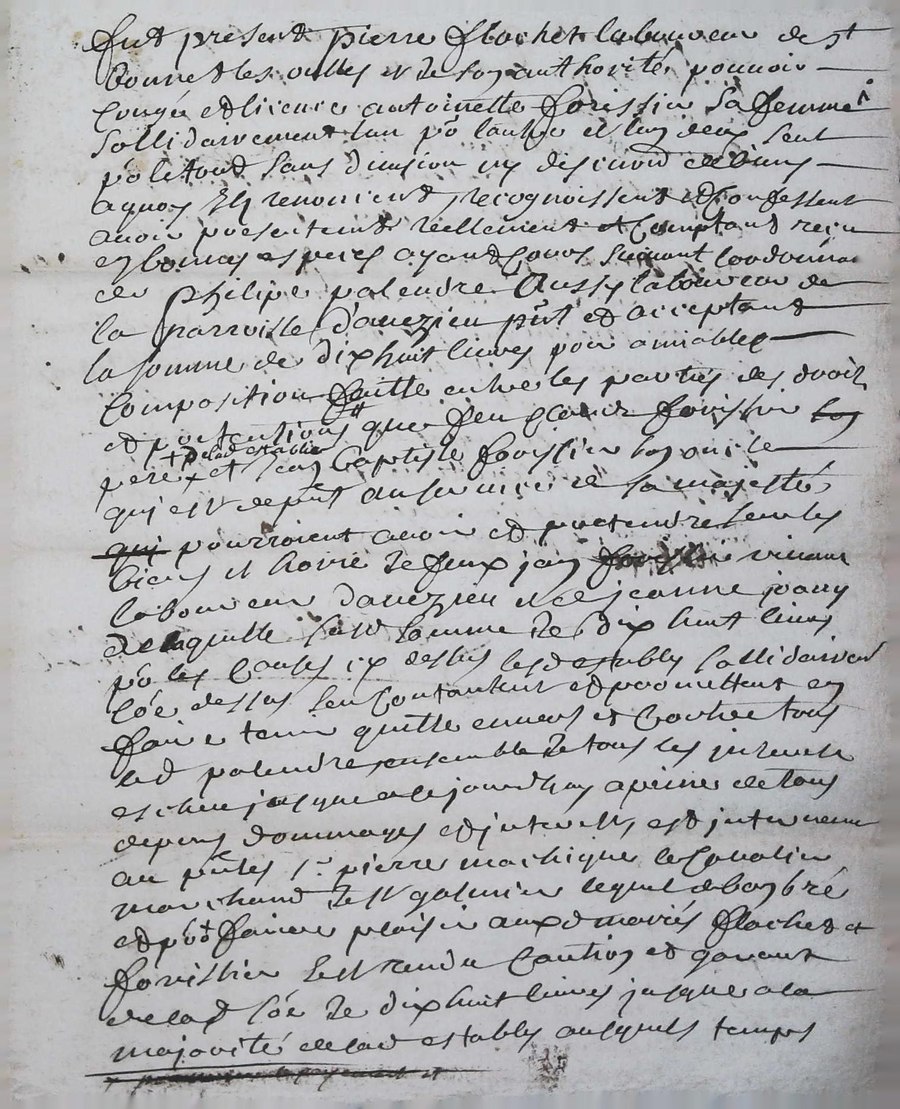 fut present pierre flachet laboureur de st
bonnet les oulles et de son authorité pouvoir
congé et licence antoinette forissier sa femme
sollidairement lun po lautre et lun deux seul
po le tout sans division ny discution de biens
a quoy ils renoncent recognoissent et confessent
avoir presentement reellement et comptant receu
en bonnes especes ayant cours suivant lordonna
de Philipe palendre aussy laboureur de
la parroisse daveizieu pnt et acceptant
la somme de dix huit livres pour amiable
composition faitte entre les parties des droits
et pretentions que feu forissier son
+ de lad establie
pere et Jean baptiste forissier son oncle
qui est depnt au service de sa majesté
qui pourroient avoir et pretendre sur les
biens et hoirie de feux jean forissier vivant
laboureur daveizieu et de jeanne jany
de laquelle susd somme de dix huit livres
po les causes cy dessus lesd establys sollidairemt
coe dessus sen contentent et promettent en
faire tenir quitte envers et contre tous
led palendre ensemble de tous les interests
escheu jusques a ce jourdhuy a peine de tous
depens dommages et interests est intervenu
au pntes sr pierre machique le cavalier
marchand de st galmier lequel de bon gré
et po faire plaisir auxd mariés flachet et
forissier sest rendu caution et garant
de lad soe de dix huit livres jusque a la
majorité de lad establys auquels temps